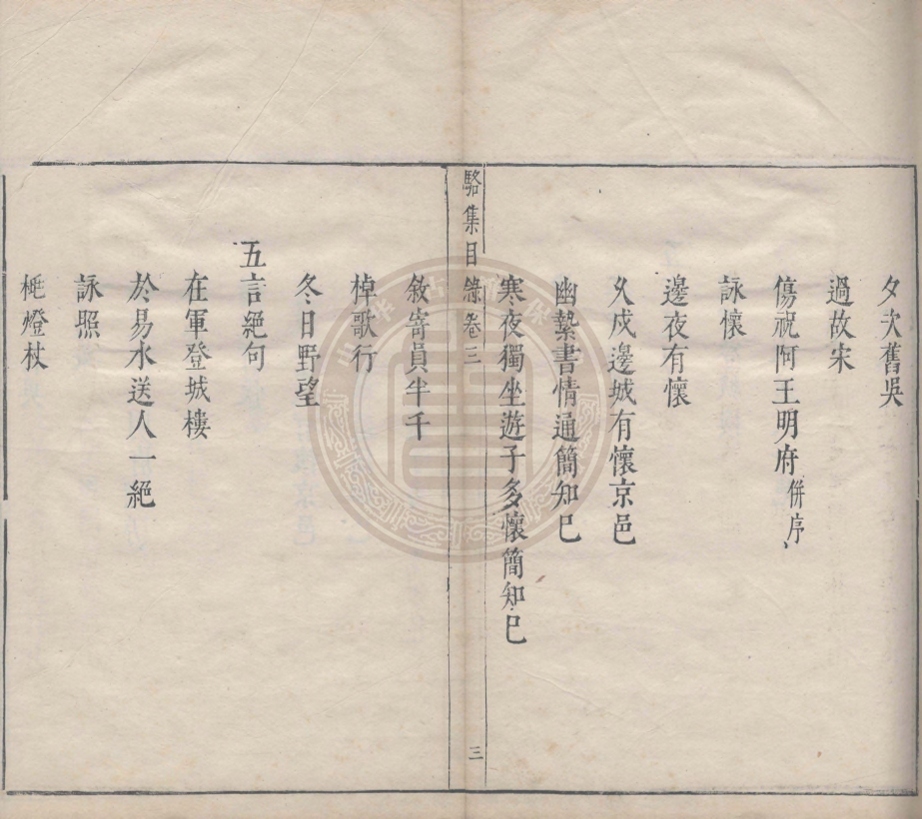 夕次舊吳
過故宋
傷祝阿王明府併序
詠懷
邊夜有懷
久戍邊城有懷京邑
幽縶書情通簡知已
寒夜獨坐遊子多懷簡知已
駱集目錄卷三
三
敘寄員半千
棹歌行
冬日野望
五言絕句
在軍登城樓
於易水送人一絕
詠照
挑燈杖